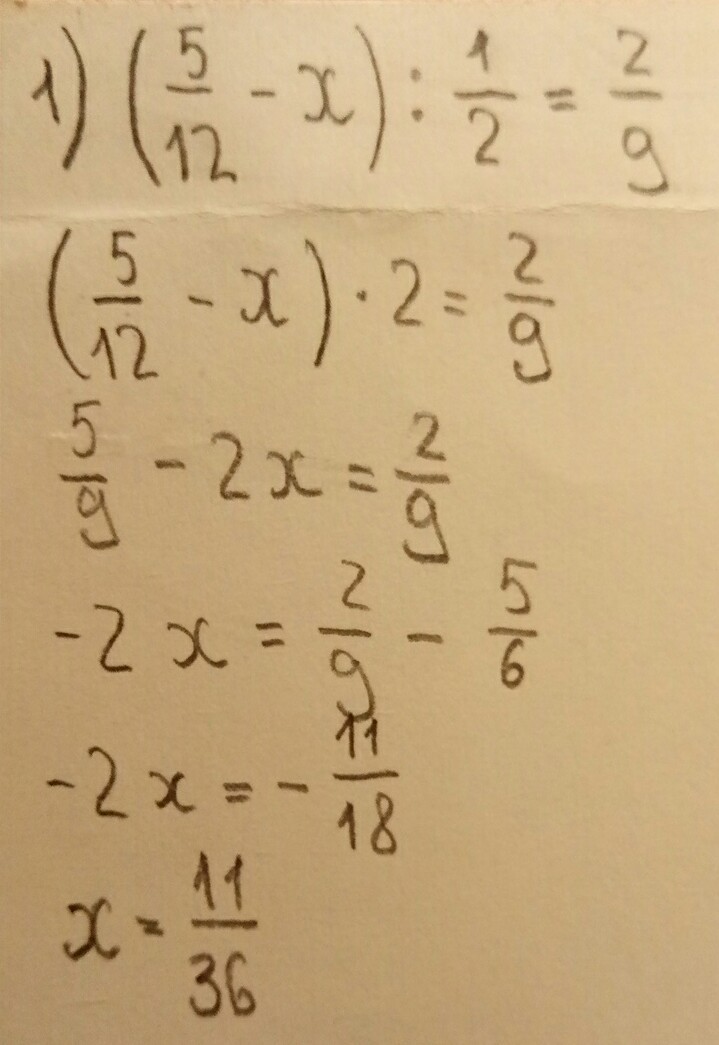 1) (5/12 - x) : 1/2 = 2/9
(5/12 - x) · 2 = 2/9
5/9 - 2x = 2/9
-2x = 2/9 - 5/6
-2x = - 11/18
x = 11/36